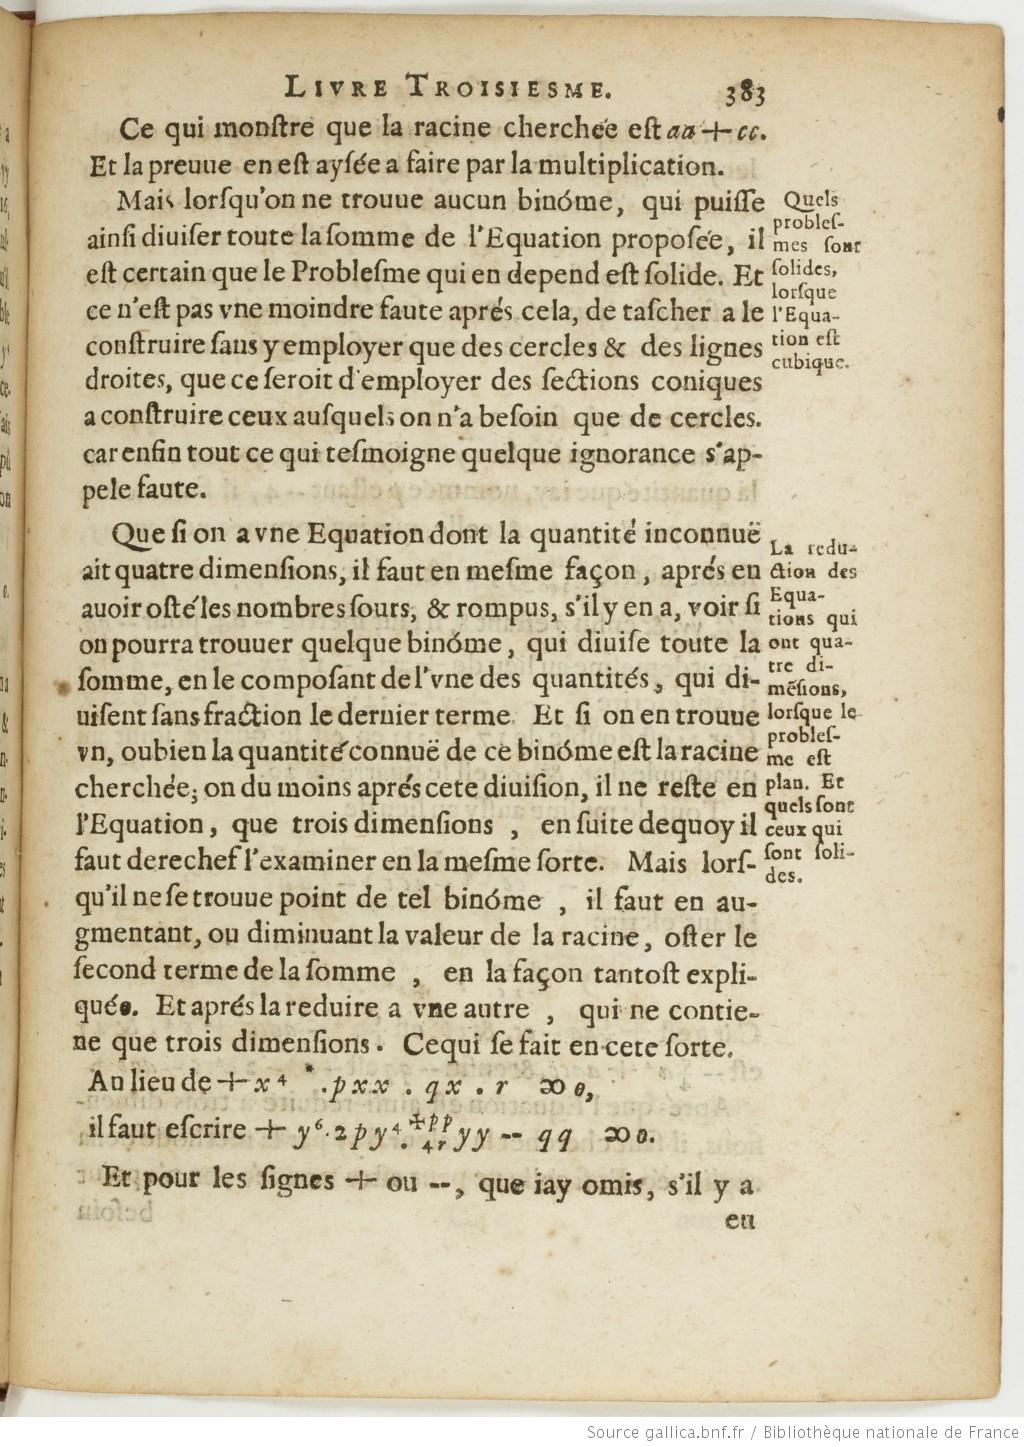 LIVRE TROISIESME. 383
Ce qui monſtre que la racine cherchée eſt aa + cc.
Et la preuue en eſt ayſée a faire par la multiplication.
Mais lorſqu'on ne trouue aucun binóme, qui puiſſe
ainſi diuiſer toute la ſomme de l'Equation propoſée, il
eſt certain que le Probleſme qui en depend eſt ſolide. Et
ce n'eſt pas vne moindre faute aprés cela, de taſcher a le
conſtruire ſans y employer que des cercles & des lignes
droites, que ce ſeroit d'employer des ſections coniques
a conſtruire ceux auſquels on n'a beſoin que de cercles.
car enfin tout ce qui teſmoigne quelque ignorance s'ap-
pele faute.
Quels
probleſ-
mes ſont
ſolides,
lorſque
l'Equa-
tion eſt
cubique.
Que ſi on a vne Equation dont la quantité inconnuë
ait quatre dimenſions, il faut en meſme façon, aprés en
auoir oſté les nombres ſours, & rompus, s'il y en a, voir ſi
on pourra trouuer quelque binóme, qui diuiſe toute la
ſomme, en le compoſant de l'vne des quantités, qui di-
uiſent ſans fraction le dernier terme. Et ſi on en trouue
vn, oubien la quantité connuë de ce binóme eſt la racine
cherchée; on du moins aprés cete diuiſion, il ne reſte en
l'Equation, que trois dimenſions, en ſuite dequoy il
faut derechef l'examiner en la meſme ſorte. Mais lorſ-
qu'il ne ſe trouue point de tel binóme, il faut en au-
gmentant, ou diminuant la valeur de la racine, oſter le
ſecond terme de la ſomme, en la façon tantoſt expli-
quée. Et aprés la reduire a vne autre, qui ne contie-
ne que trois dimenſions. Cequi ſe fait en cete ſorte.
La redu-
ction des
Equa-
tions qui
ont qua-
tre di-
mẽſions,
lorſque le
probleſ-
me eſt
plan. Et
quels ſont
ceux qui
ſont ſoli-
des.
Au lieu de + x⁴ *. pxx . qx . r ꝏ 0,
il faut eſcrire + y⁶ . 2py⁴ ± pp . 4r yy -- qq ꝏ 0.
Et pour les ſignes + ou --, que iay omis, s'il y a
eu
Source gallica.bnf.fr / Bibliothèque nationale de France